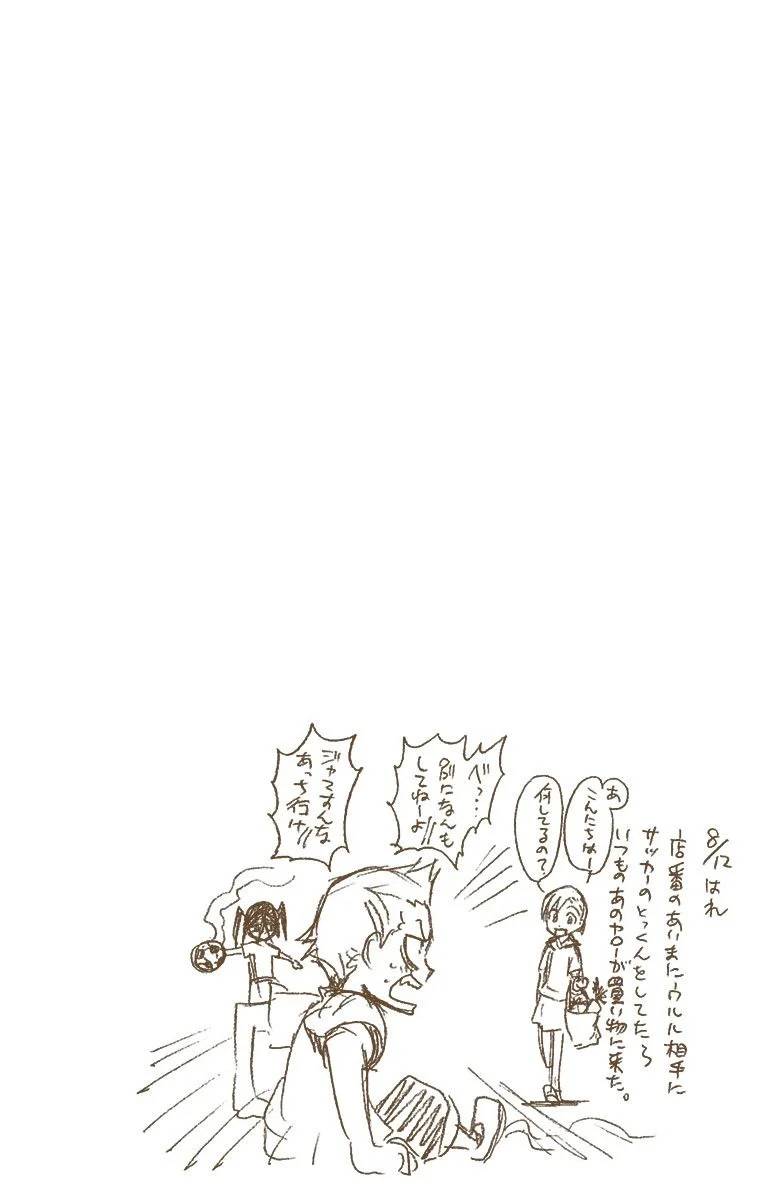 8/12 はれ
店番のあいまにウルル相手に
サッカーのとっくんをしてたら
いつものあのヤローが買い物に来た。
あ
こんにちはー
何してるの？
べっ…
別になんも
してねーよ!!
ジャマすんな
あっち行け!!